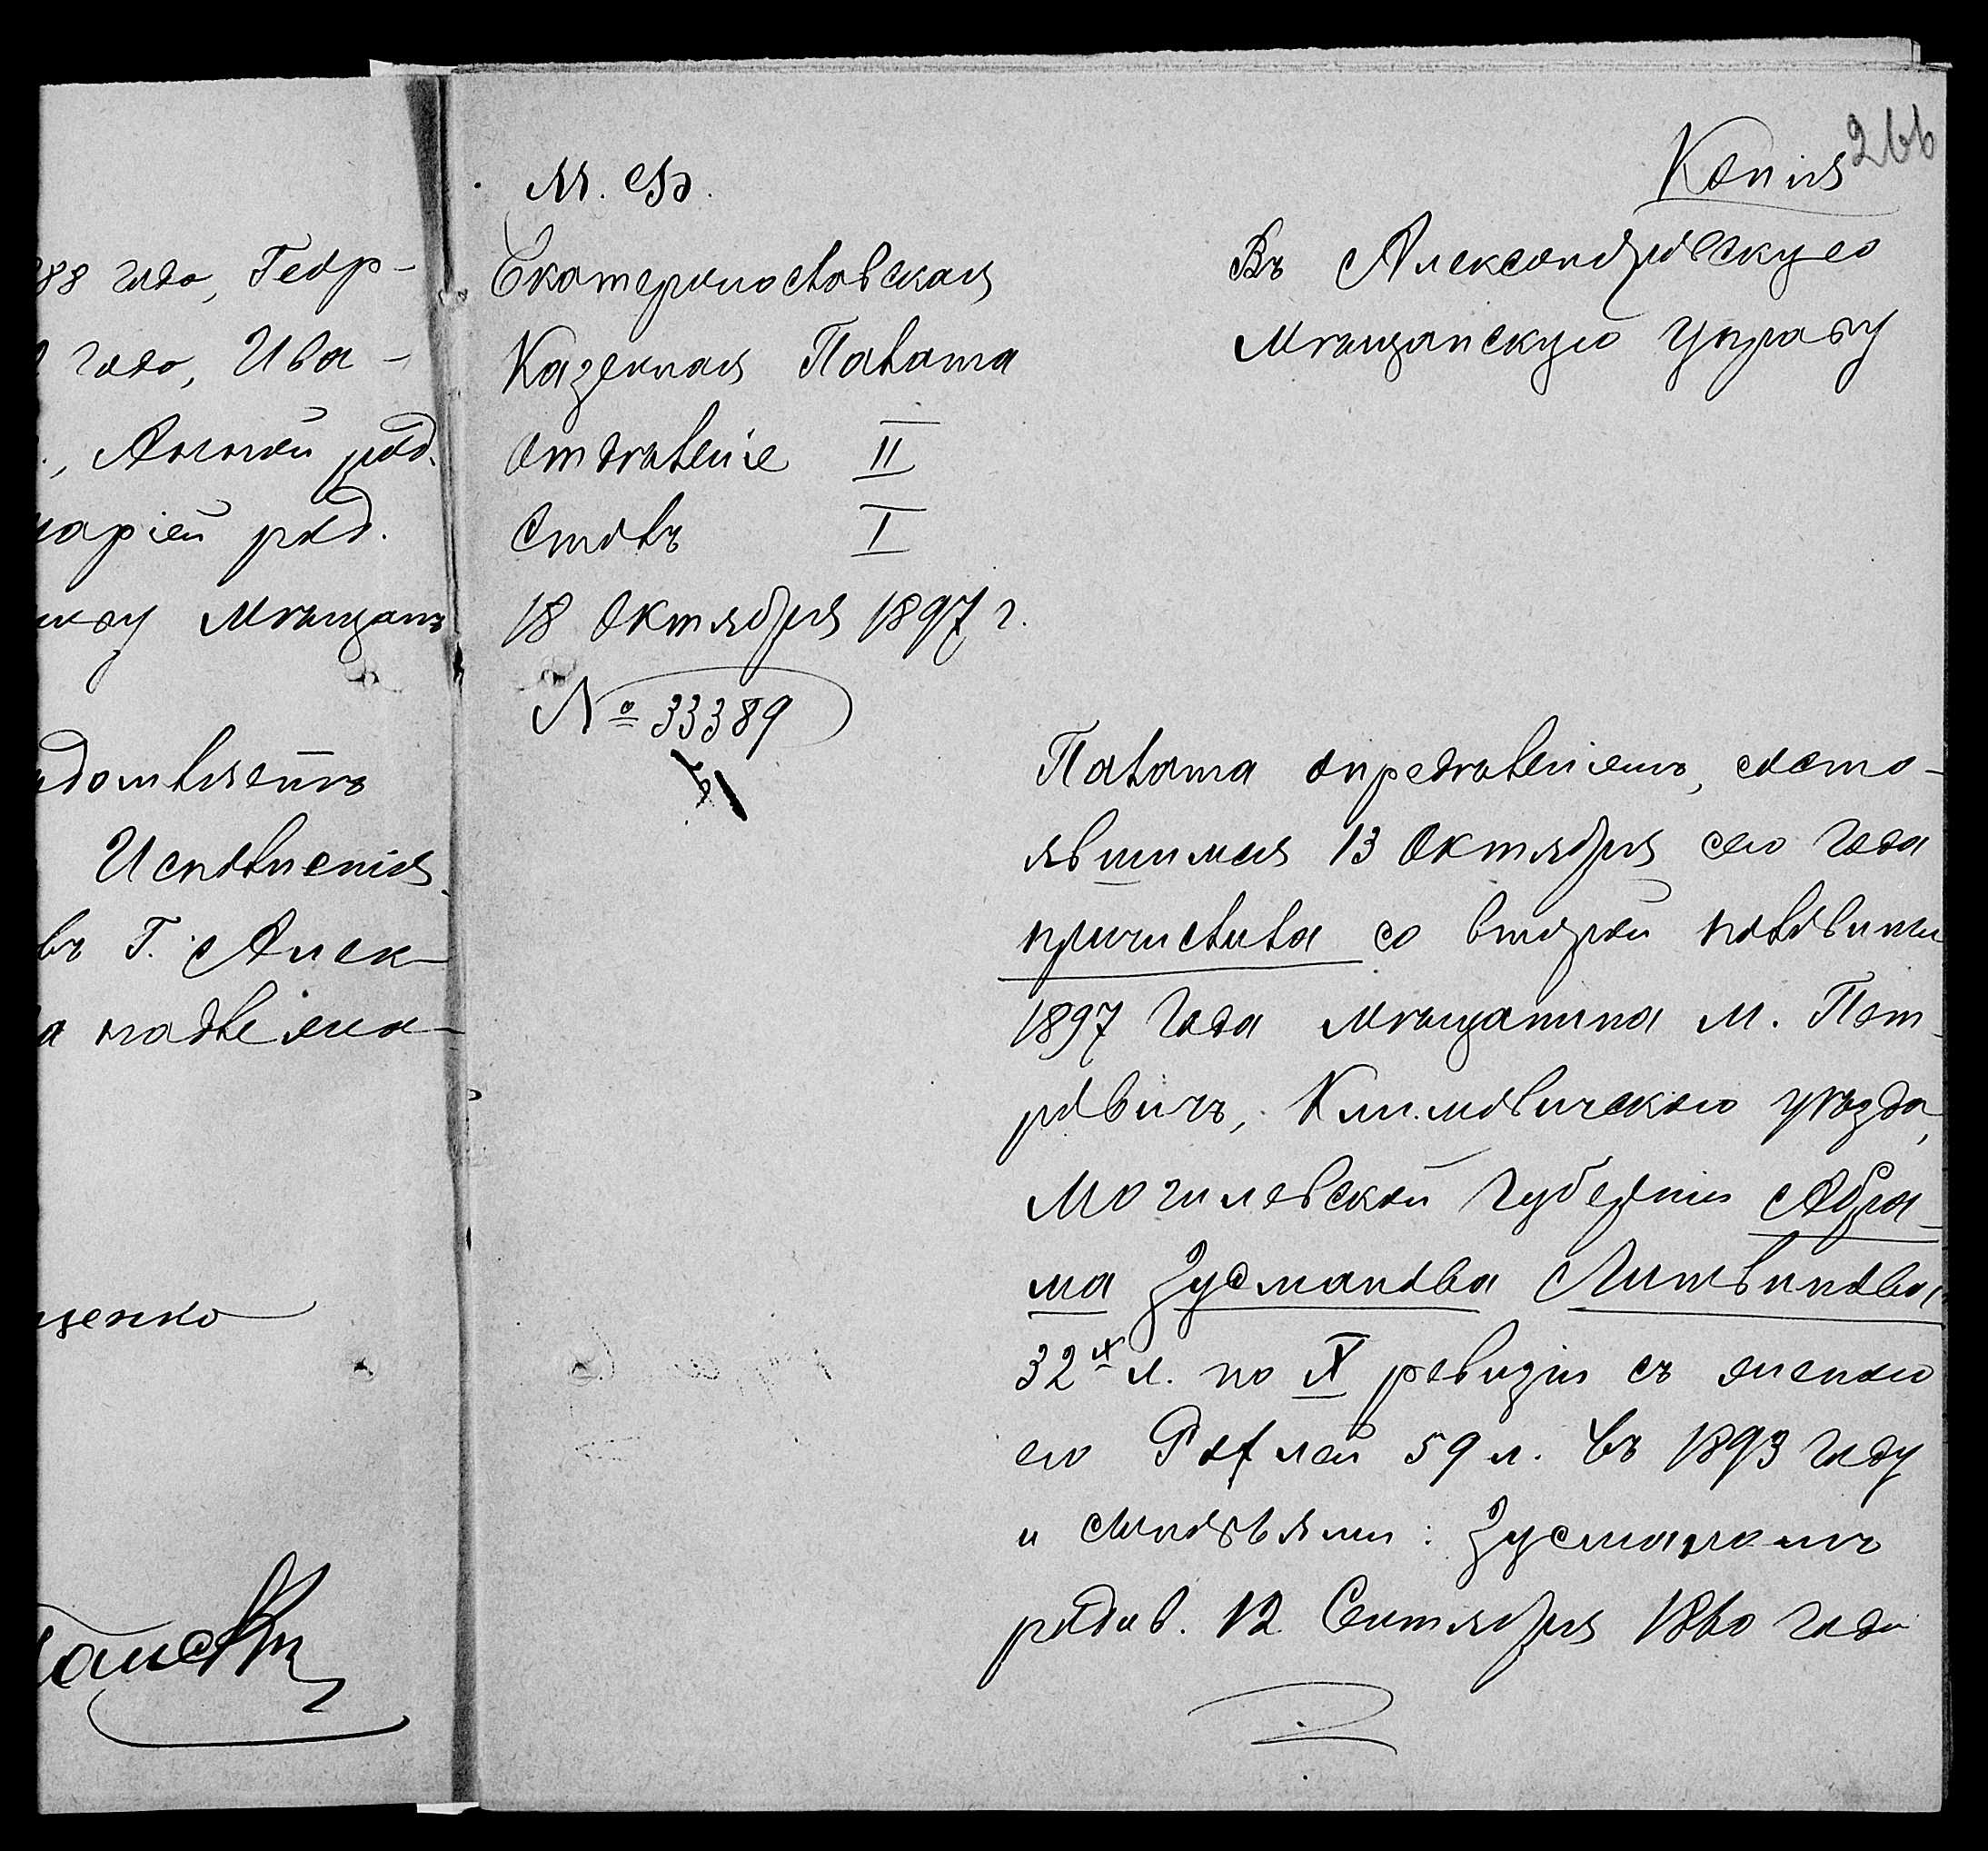 88 года, Геор-
года, Ива-
, Анной род.
марiей род.
Мѣщан
Исполненiя
въ Г. Алек-
а надлежа-
щенко
266
Копiя
М. Ф.
Екатеринославская
Казенная Палата
Отдѣленiе II
Столъ I
18 Октября 1897 г.
№ 33389
Въ Александровскую
Мѣщанскую Управу
Палата опредѣленiемъ, состо-
явшимся 13 Октября сего года
причислила со второй половины
1897 года мѣщанина м. Пет-
ровичъ, Климовичскаго уѣзда,
Могилевской губернiи Абра-
ма Зусманова Литвинова
32х л. по X ревизiи съ женою
его Рохлей 59 л. въ 1893 году
и сыновьями: Зусманомъ
родив. 12 Сентября 1860 года